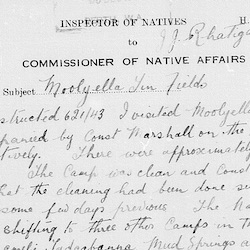 INSPECTOR OF NATIVES H
J.J. Rhatiga
to
COMMISSIONER OF NATIVE AFFAIRS
Subject Moolyella Tin Fields
structed 631/43 I visited Moolyella
panied by Const Marshall on the
tively. There were approximatel
The Camp was clean and Const
that the cleaning had been done se
some few days previous. The Na
shifting to three other Camps in
Mud Springs